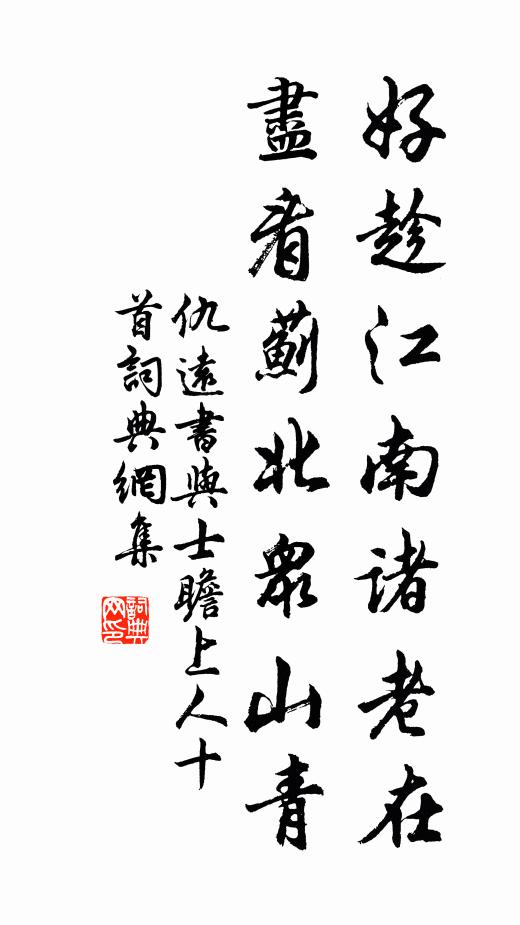 好趁江南諸老在
盡看薊北衆山青
仇遠書與士瞻上人十
首詞典網集
詞典
网印